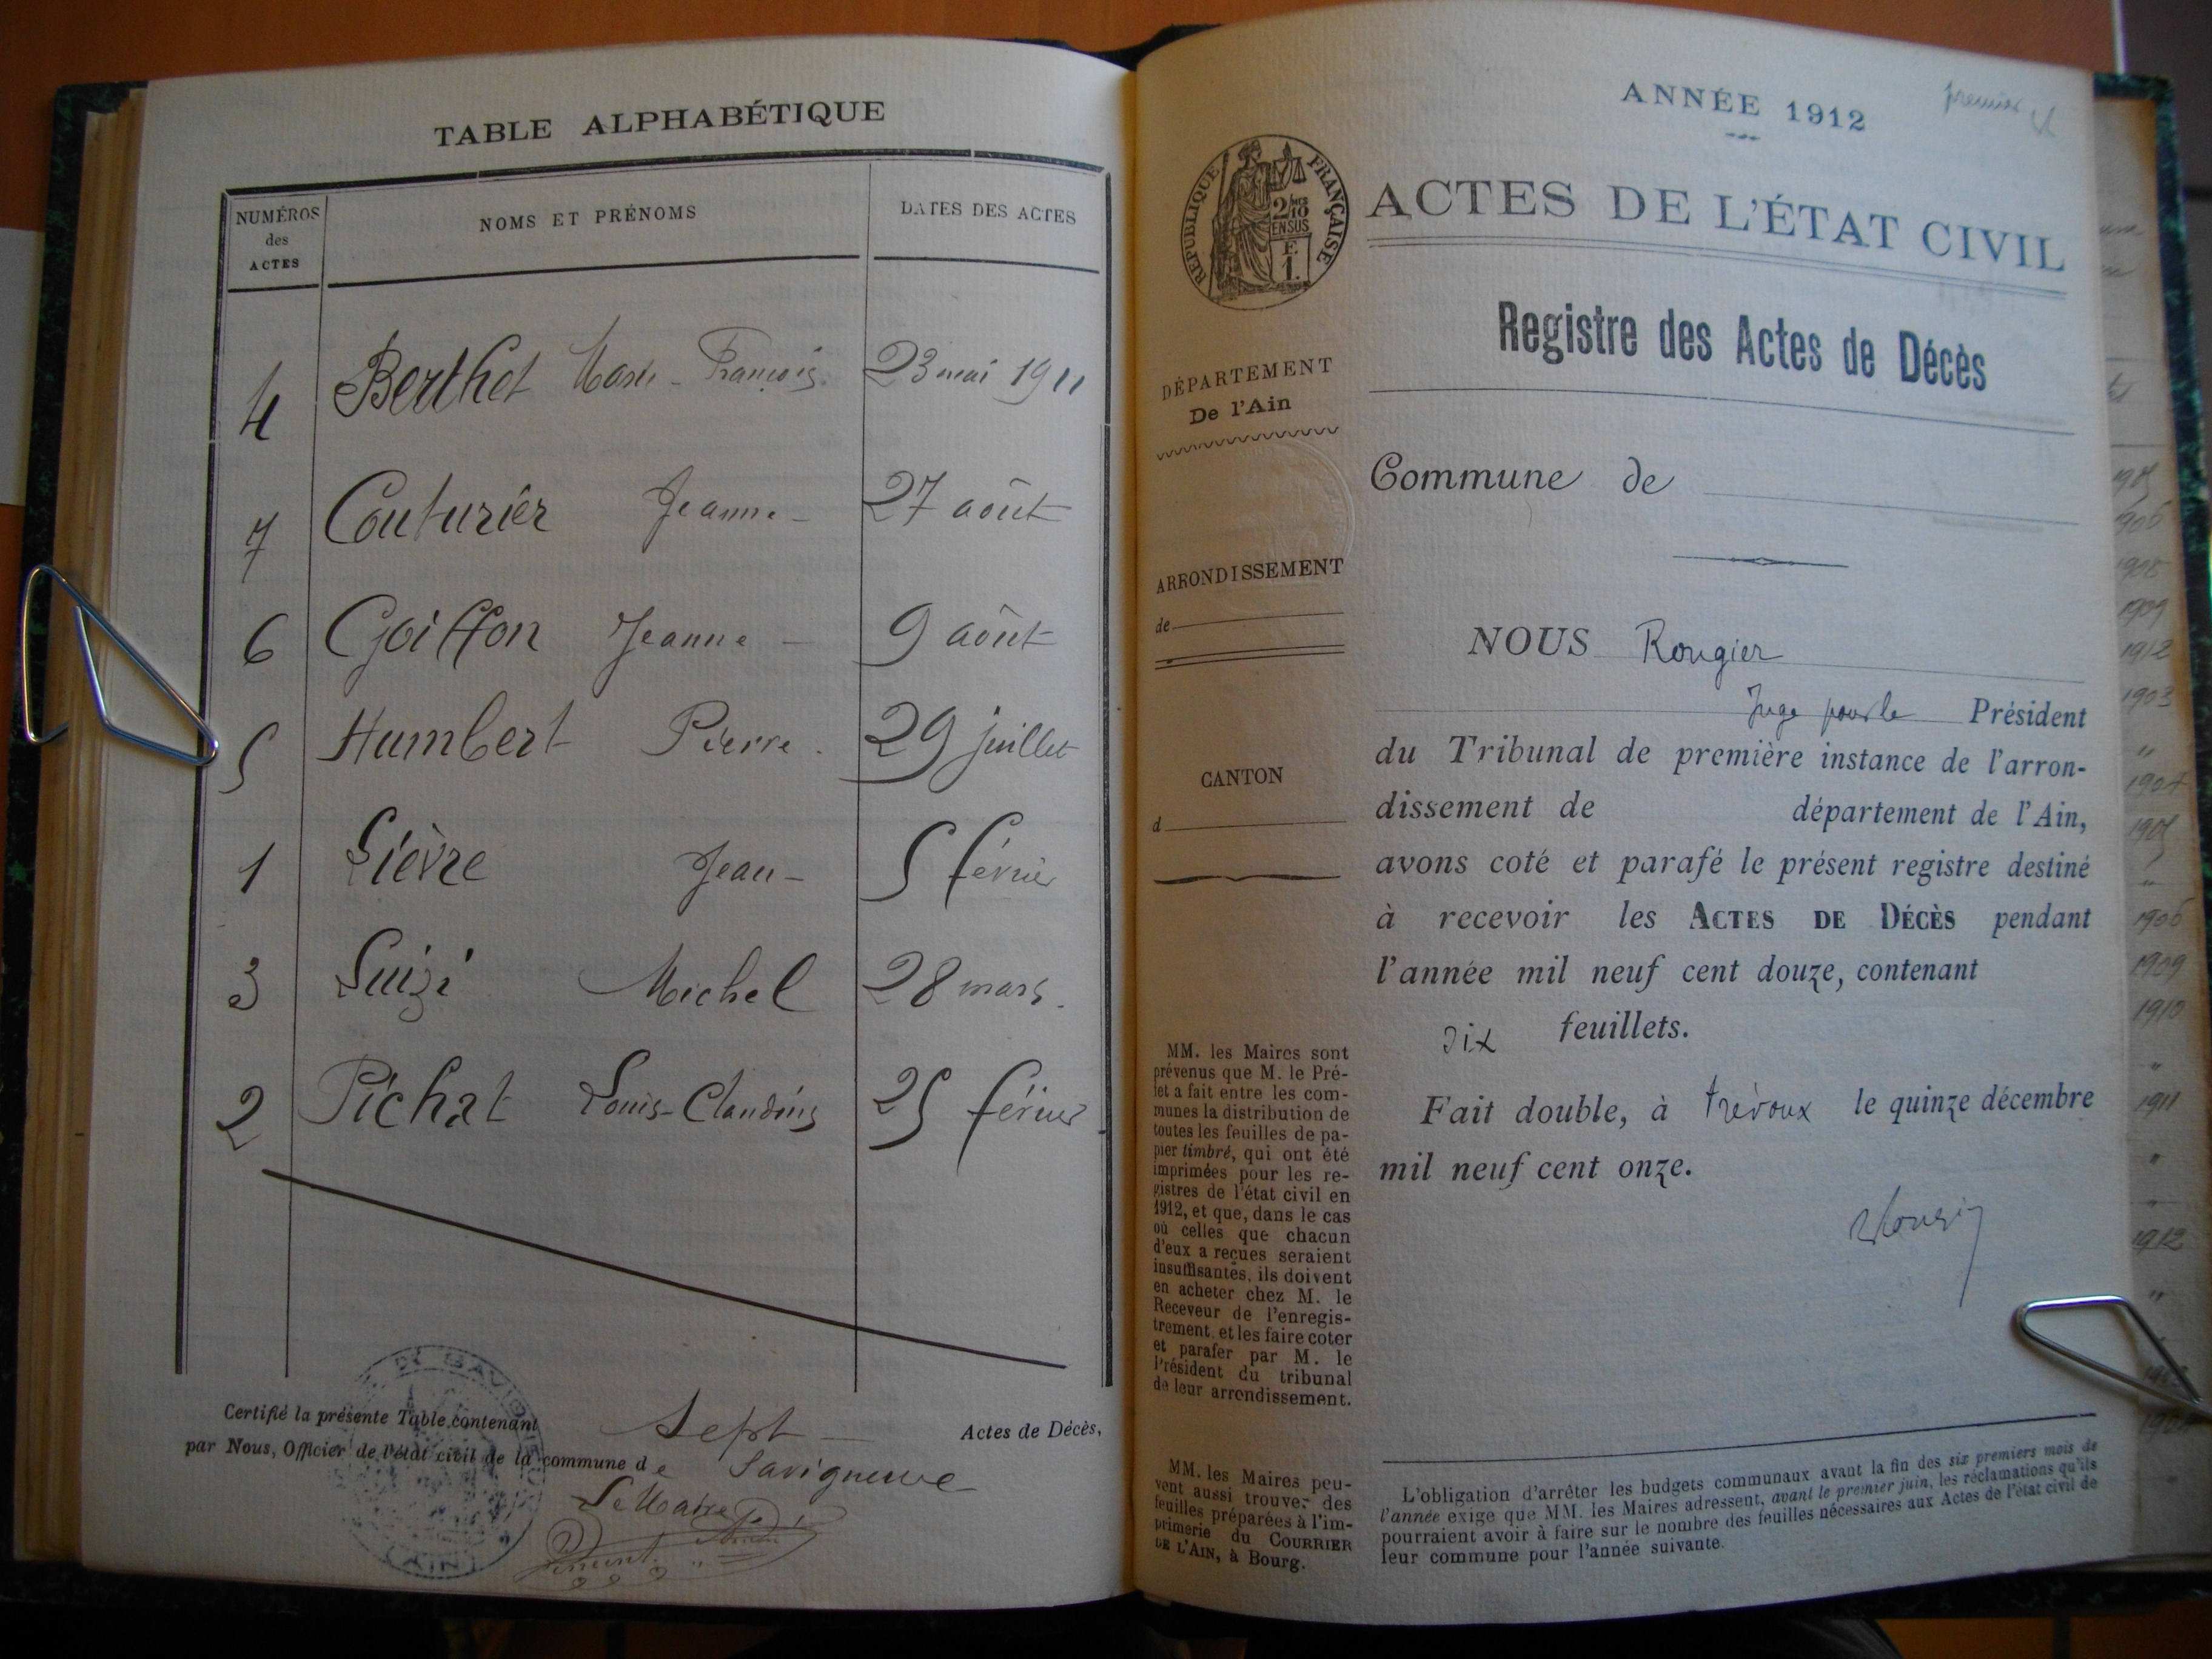 TABLE ALPHABÉTIQUE
NUMÉROS des ACTES
NOMS ET PRÉNOMS
DATES DES ACTES
4 Berthet Marie-François 23 mai 1911
7 Couturier Jeanne 27 août
6 Goiffon Jeanne 9 août
5 Humbert Pierre 29 juillet
1 Lièvre Jean 5 février
3 Luizi Michel 28 mars
2 Pichat Louis-Claudius 25 février
Certifié la présente Table contenant Sept Actes de Décès,
par Nous, Officier de l'état civil de la commune de Savigneux
Le Maire
ANNÉE 1912
premier
RÉPUBLIQUE FRANÇAISE
ACTES DE L'ÉTAT CIVIL
Registre des Actes de Décès
DÉPARTEMENT
De l'Ain
Commune de
ARRONDISSEMENT
de
CANTON
d
NOUS Rougier
Juge pour le Président
du Tribunal de première instance de l'arron-
dissement de département de l'Ain,
avons coté et parafé le présent registre destiné
à recevoir les ACTES DE DÉCÈS pendant
l'année mil neuf cent douze, contenant
dix feuillets.
Fait double, à Trévoux le quinze décembre
mil neuf cent onze.
MM. les Maires sont
prévenus que M. le Pré-
fet a fait entre les com-
munes la distribution de
toutes les feuilles de pa-
pier timbré, qui ont été
imprimées pour les re-
gistres de l'état civil en
1912, et que, dans le cas
où celles que chacun
d'eux a reçues seraient
insuffisantes, ils doivent
en acheter chez M. le
Receveur de l'enregis-
trement, et les faire coter
et parafer par M. le
Président du tribunal
de leur arrondissement.
MM. les Maires peu-
vent aussi trouver des
feuilles préparées à l'im-
primerie du COURRIER
DE L'AIN, à Bourg.
L'obligation d'arrêter les budgets communaux avant la fin des six premiers mois de
l'année exige que MM. les Maires adressent, avant le premier juin, les réclamations qu'ils
pourraient avoir à faire sur le nombre des feuilles nécessaires aux Actes de l'état civil de
leur commune pour l'année suivante.